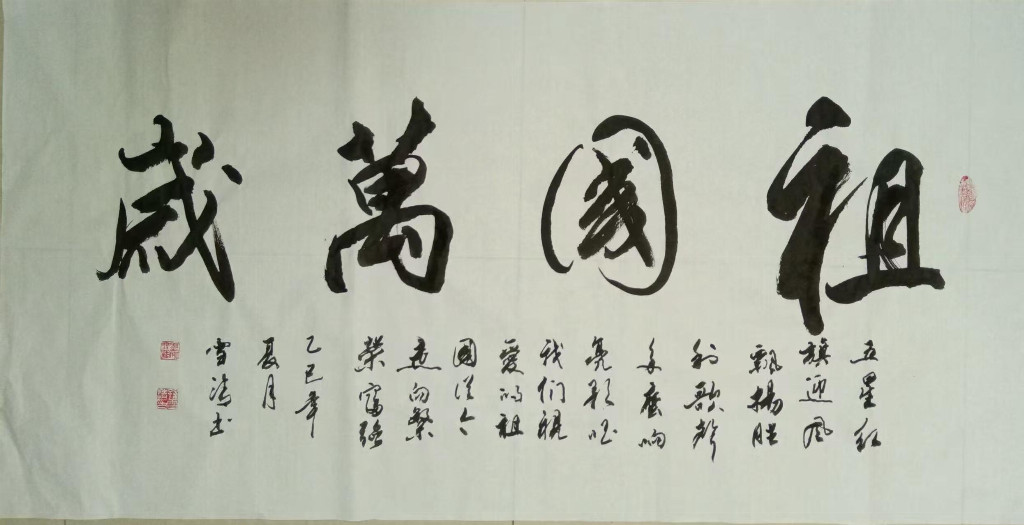 祖國萬歲
五星红
旗迎风
飄揚胜
利歌声
多麼响
亮歌唱
我们親
愛的祖
國從今
走向繁
榮富强
乙巳年
夏月
雪